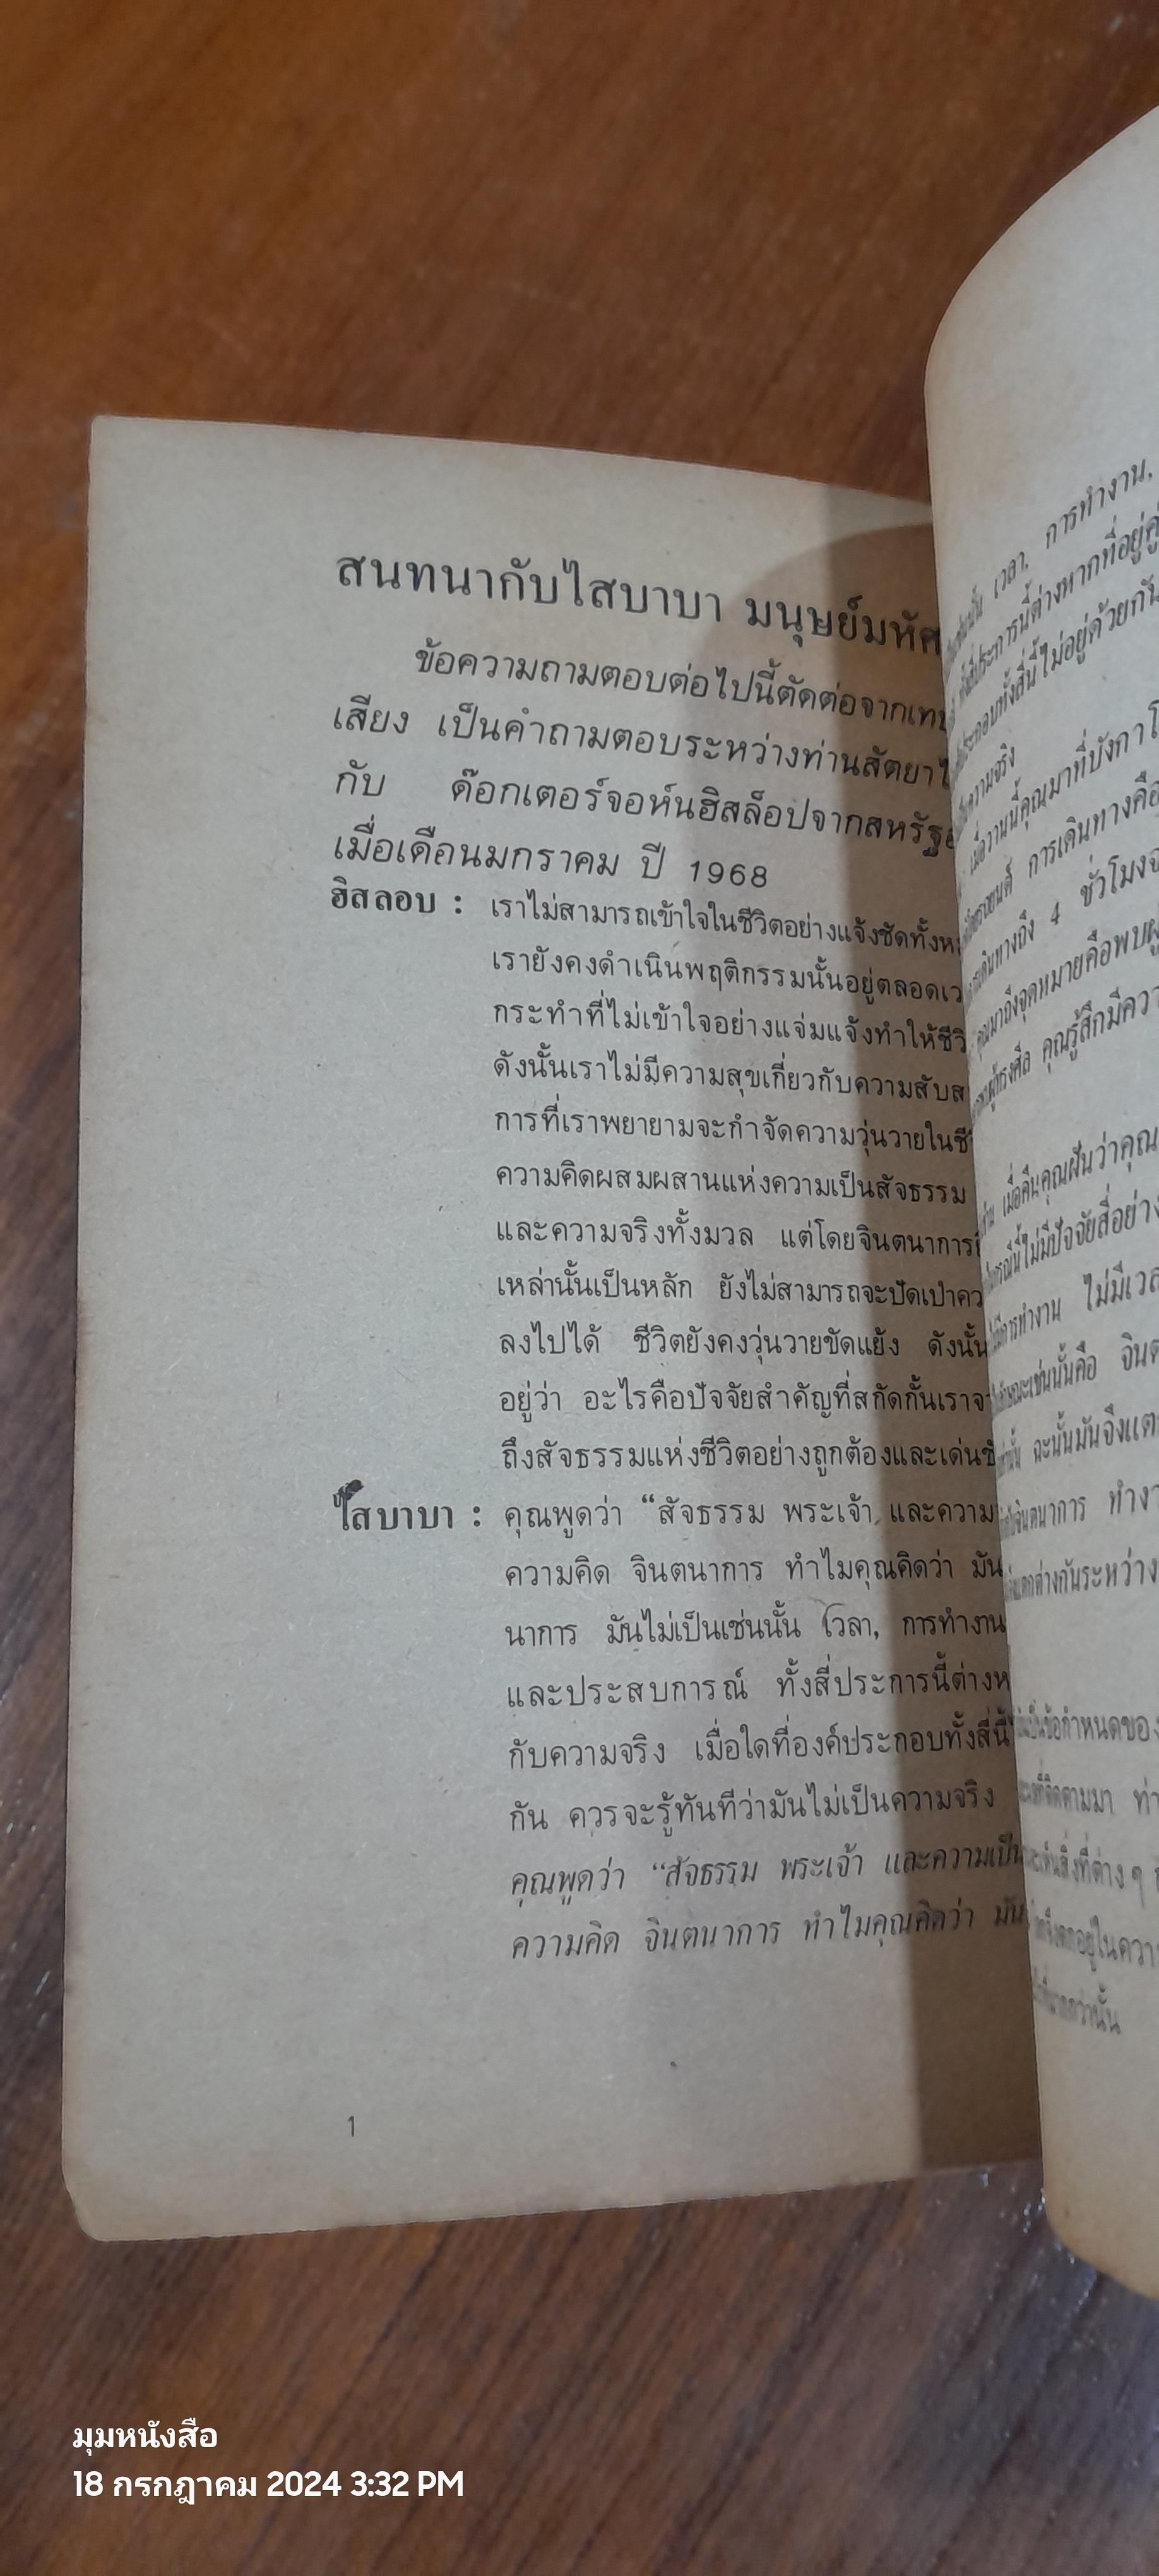 สนทนากับไสบาบา มนุษย์มหัศ
ข้อความถามตอบต่อไปนี้ตัดต่อจากเทป
เสียง เป็นคำถามตอบระหว่างท่านสัตยาไ
กับ ด๊อกเตอร์จอห์นฮิสล็อปจากสหรัฐ
เมื่อเดือนมกราคม ปี 1968
ฮิสลอบ : เราไม่สามารถเข้าใจในชีวิตอย่างแจ้งชัดทั้งห
เรายังคงดำเนินพฤติกรรมนั้นอยู่ตลอดเว
กระทำที่ไม่เข้าใจอย่างแจ่มแจ้งทำให้ชีวิ
ดังนั้นเราไม่มีความสุขเกี่ยวกับความสับส
การที่เราพยายามจะกำจัดความวุ่นวายในชี
ความคิดผสมผสานแห่งความเป็นสัจธรรม
และความจริงทั้งมวล แต่โดยจินตนาการ
เหล่านั้นเป็นหลัก ยังไม่สามารถจะปัดเป่าคว
ลงไปได้ ชีวิตยังคงวุ่นวายขัดแย้ง ดังนั้น
อยู่ว่า อะไรคือปัจจัยสำคัญที่สกัดกั้นเราจ
ถึงสัจธรรมแห่งชีวิตอย่างถูกต้องและเด่นชั
ไสบาบา : คุณพูดว่า “สัจธรรม พระเจ้า และความ
ความคิด จินตนาการ ทำไมคุณคิดว่า มัน
นาการ มันไม่เป็นเช่นนั้น เวลา, การทำงาน
และประสบการณ์ ทั้งสี่ประการนี้ต่างห
กับความจริง เมื่อใดที่องค์ประกอบทั้งสี่นี้
กัน ควรจะรู้ทันทีว่ามันไม่เป็นความจริง
คุณพูดว่า “สัจธรรม พระเจ้า และความเป็น
ความคิด จินตนาการ ทำไมคุณคิดว่า มัน
1
เวลา, การทำงาน,
ประการนี้ต่างหากที่อยู่คู่
ประกอบทั้งสี่นี้ไม่อยู่ด้วยกัน
ความจริง
เมื่อวานนี้คุณมาที่บังกาโ
รถยนต์ การเดินทางคือ
เดินทางถึง 4 ชั่วโมงจ
คุณมาถึงจุดหมายคือพบผู้
ผู้ทรงศีล คุณรู้สึกมีควา
เมื่อคืนคุณฝันว่าคุณ
กรณีนี้ไม่มีปัจจัยสี่อย่าง
การทำงาน ไม่มีเวล
ลักษณะเช่นนั้นคือ จินต
เท่านั้น ฉะนั้นมันจึงแต
จินตนาการ ทำงา
แตกต่างกันระหว่าง
เป็นข้อกำหนดของ
ติดตามมา ท่า
เห็นสิ่งที่ต่าง ๆ
ตกอยู่ในควา
กว่านั้น
มุมหนังสือ
18 กรกฎาคม 2024 3:32 PM